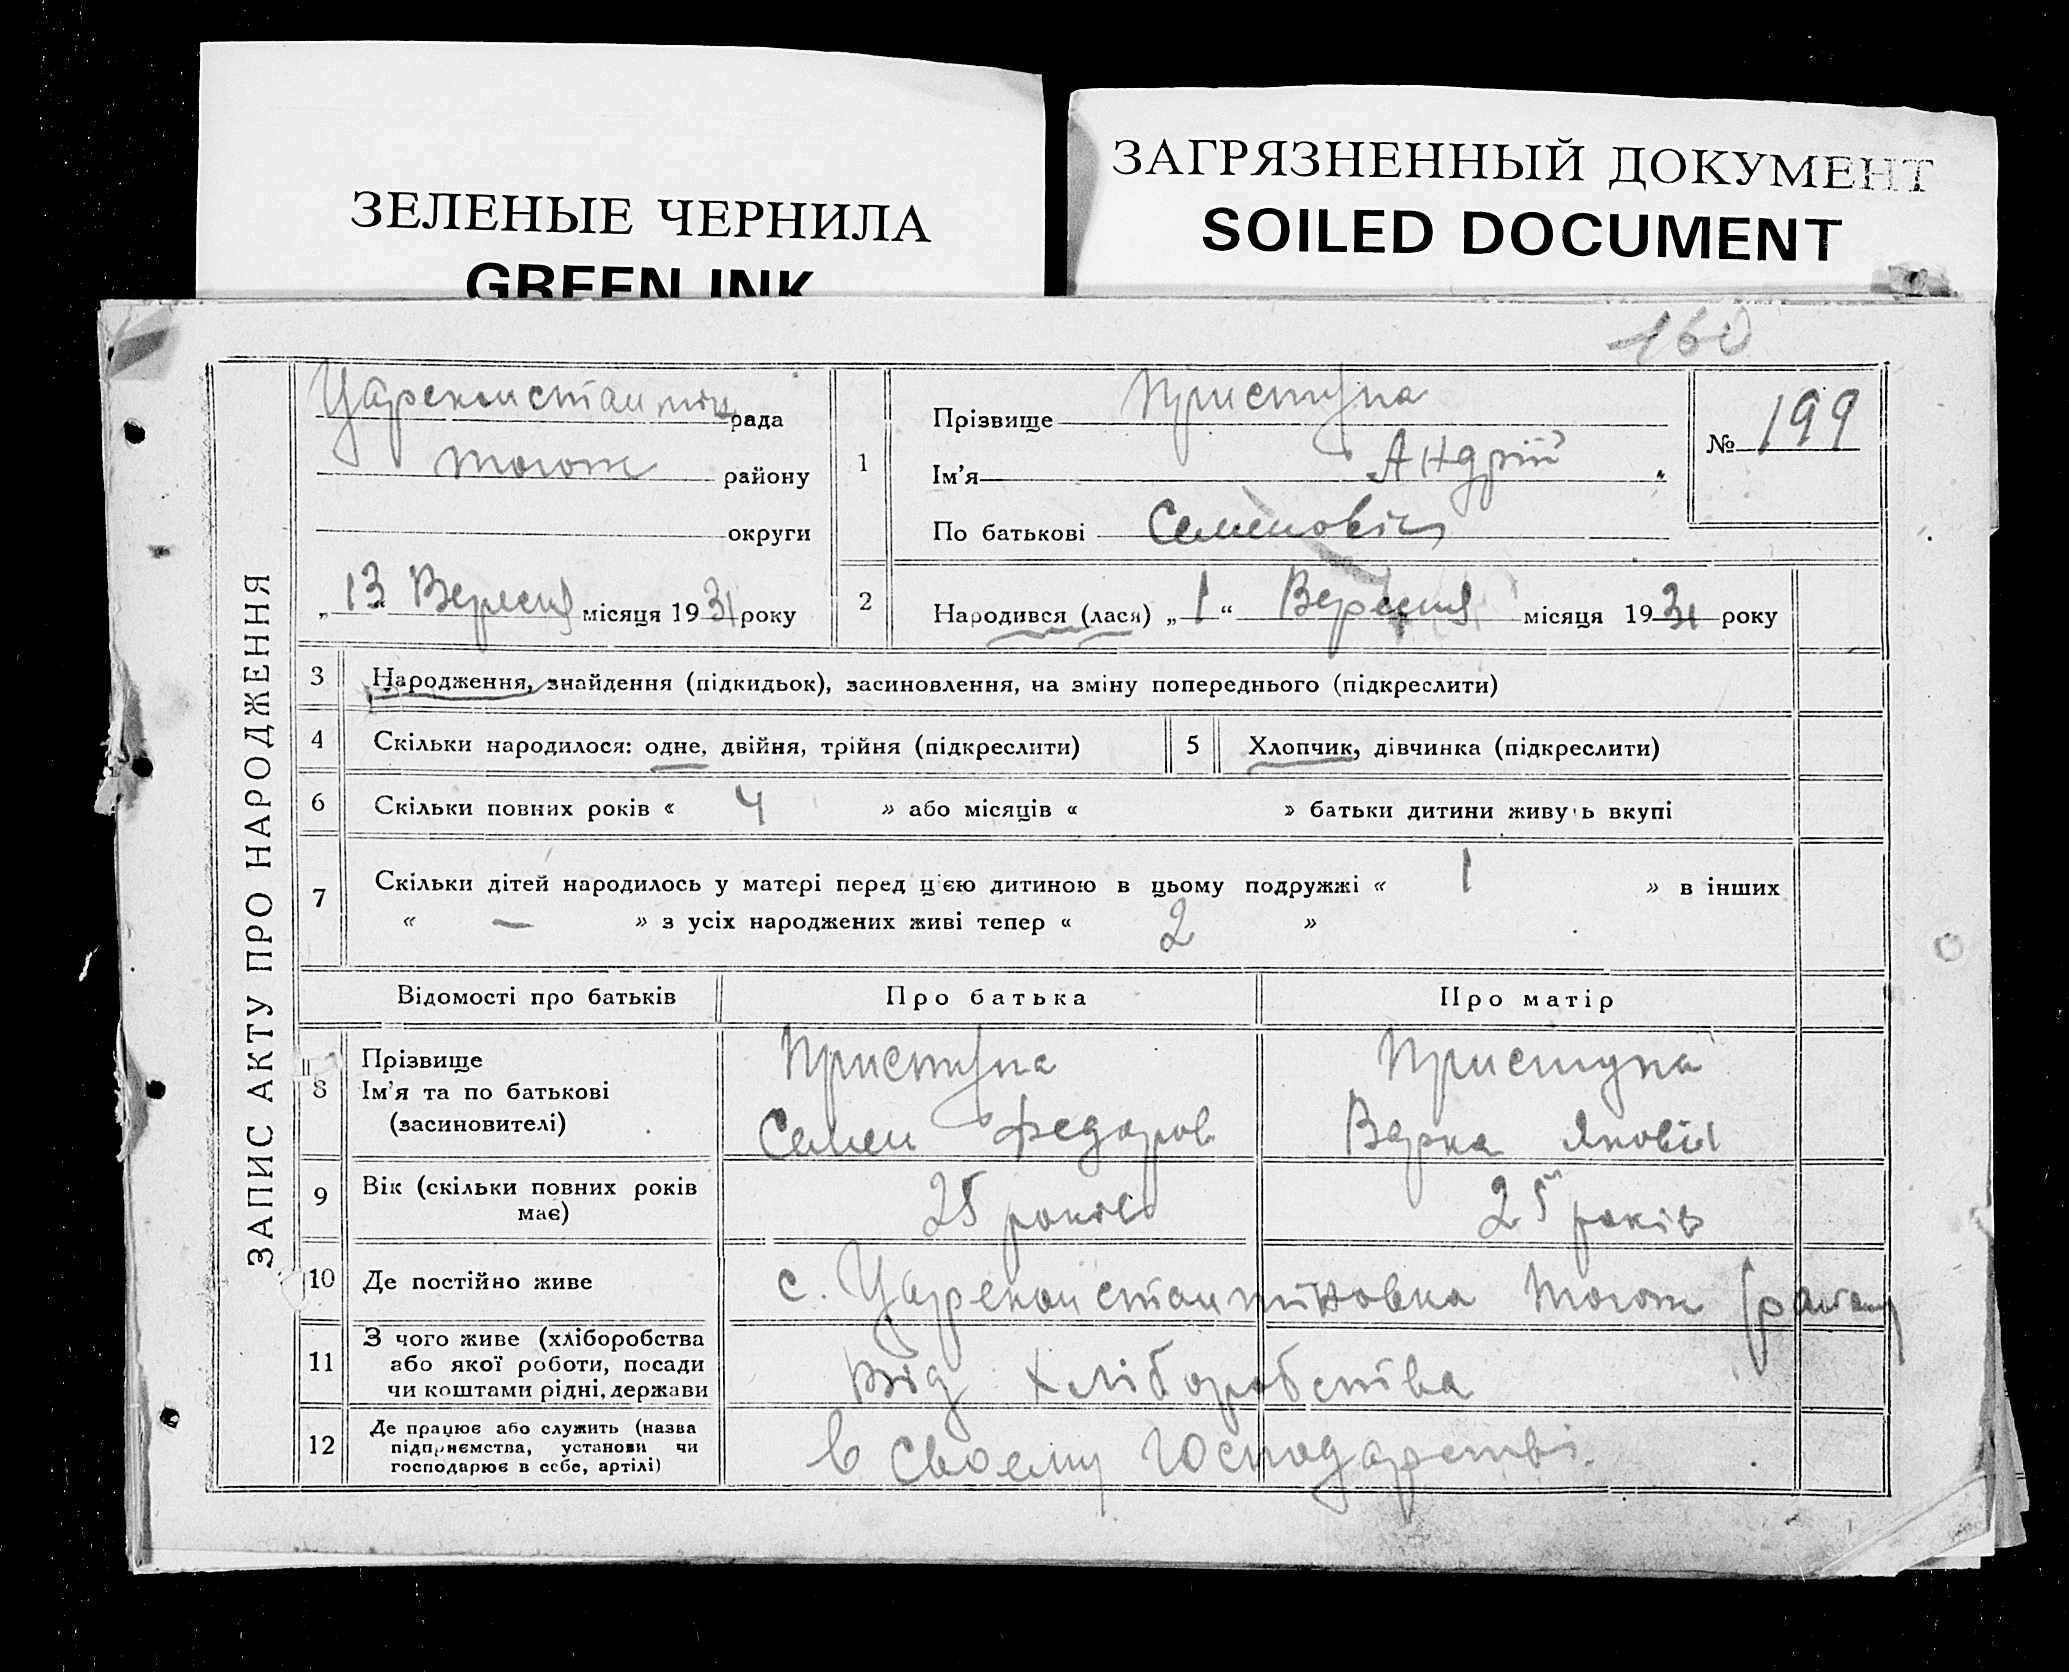 ЗЕЛЕНЫЕ ЧЕРНИЛА
GREEN INK
ЗАГРЯЗНЕННЫЙ ДОКУМЕНТ
SOILED DOCUMENT
160
ЗАПИС АКТУ ПРО НАРОДЖЕННЯ
Цареконстантин рада
району
округи
„ 13 " Вересня місяця 1931 року
1
Прізвище Приступа
Ім'я Андрій
По батькові Семенович
№ 199
2
Народився (лася) „ 1 “ Вересня місяця 1931 року
3 Народження, знайдення (підкидьок), засиновлення, на зміну попереднього (підкреслити)
4 Скільки народилося: одне, двійня, трійня (підкреслити)
5 Хлопчик, дівчинка (підкреслити)
6 Скільки повних років « 4 » або місяців « » батьки дитини живуть вкупі
7 Скільки дітей народилось у матері перед цією дитиною в цьому подружжі « 1 » в інших
« — » з усіх народжених живі тепер « 2 »
Відомості про батьків Про батька Про матір
8 Прізвище Приступа Приступа
Ім'я та по батькові
(засиновителі) Семен Федоров Варка Яковл
9 Вік (скільки повних років має) 25 років 25 років
10 Де постійно живе с. Цареконстантиновка
11 З чого живе (хліборобства
або якої роботи, посади
чи коштами рідні, держави Від хліборобства
12 Де працює або служить (назва
підприємства, установи чи
господарює в себе, артілі) в своему господарстві.